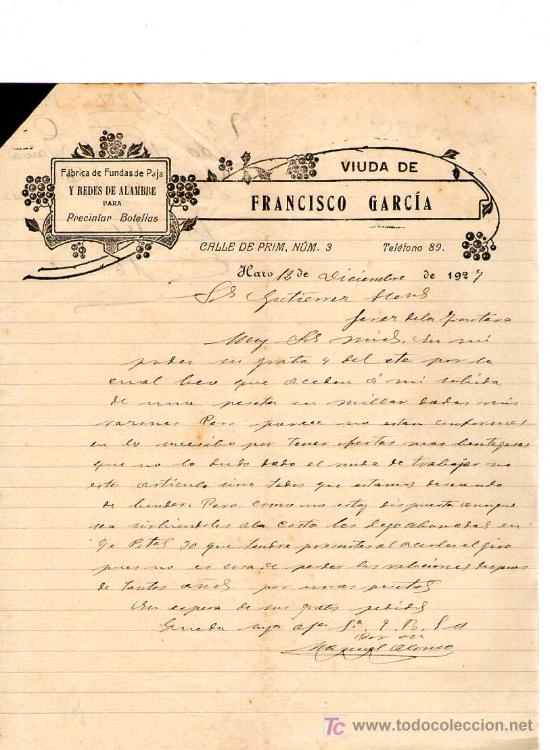 Fábrica de Fundas de Paja
Y REDES DE ALAMBRE
PARA
Precintar Botellas
VIUDA DE
FRANCISCO GARCÍA
CALLE DE PRIM, NÚM. 3 Teléfono 89.
Haro 12 de Diciembre de 1927
Gutierrez
Jerez de la Frontera
Muy mios. En mi
poder su grata 9 del cte por la
cual veo que aceden á mi
de una peseta en millar dadas mis
razones Pero parece no estan conformes
en lo por tener ofertas mas bantagosas
que no lo dudo dado el modo de trabajar no
este articulo sino todos que estamos deseando
de bender. Pero como no estoy dispuesta aunque
sea sirbiendoles al costo les dejo abonadas en
Ptas 30 que tendre presentes al acerles el giro
pues no es cosa de perder las relaciones despues
de tantos años por unas pesetas
En espera de sus gratos pedidos
Queda suya afª Sª Q. B. S. M
Por
Manuel Alonso
TC www.todocoleccion.net